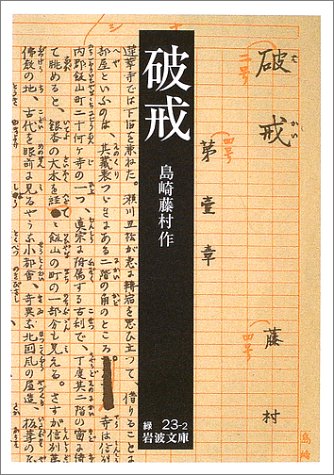 破戒
はかい
二号
第壹章
四号
藤村
四号
島崎
破戒
島崎藤村作
緑 23-2
岩波文庫
蓮華寺では下宿を兼ねた。瀬川丑松が急に轉宿を思ひ立つて、借りること
部屋といふのは、其藏裏つゞきにある二階の角のところ。寺は信
内郡飯山町二十何ヶ寺の一つ、眞宗に附屬する古刹で、丁度其二階の窓
て眺めると、銀杏の大木を經てゝ飯山の町の一部分も見える。さすが信州第
佛教の地、古代を眼前に見るやうな小都會、奇異な北國風の屋造、板葺の